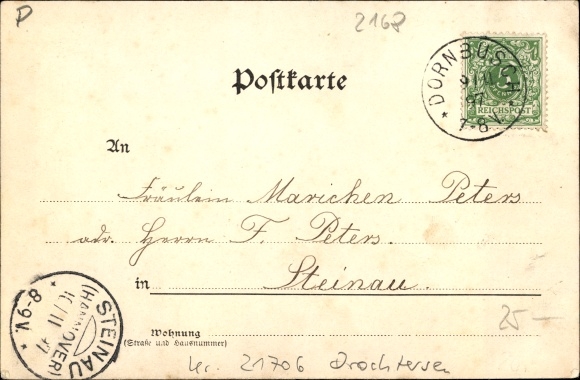 2168
Postkarte
DORNBUSCH
97
7-8 V.
REICHSPOST
An
Fräulein Marichen Peters
adr. Herrn F. Peters.
in Steinau.
STEINAU
(HANNOVER)
8-9V.
Wohnung
(Straße und Hausnummer)
25-
Kr. 21706 Drochtersen